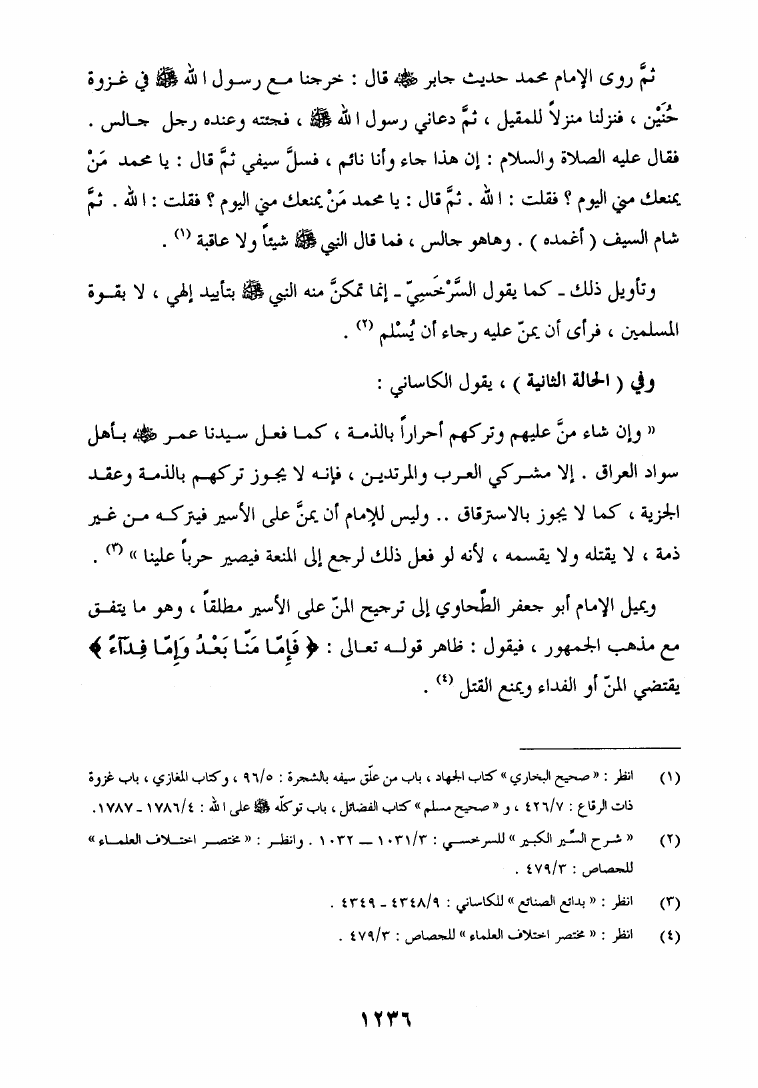 ثمَّ روى الإمام محمد حديث جابر ﷺ قال : خرجنا مع رسول الله ﷺ في غزوة
حُنَيْن ، فنزلنا منزلاً للمقيل ، ثمَّ دعاني رسول الله ﷺ ، فجئته وعنده رجل جالس .
فقال عليه الصلاة والسلام : إن هذا جاء وأنا نائم ، فسلَّ سيفي ثمَّ قال : يا محمد مَنْ
يمنعك مني اليوم ؟ فقلت : الله . ثمَّ قال : يا محمد مَنْ يمنعك مني اليوم ؟ فقلت : الله . ثمَّ
شام السيف ( أغمده ) . وهاهو جالس ، فما قال النبي ﷺ شيئاً ولا عاقبة (١) .
وتأويل ذلك ـ كما يقول السَّرْخَسِيّ ـ إنما تمكنَّ منه النبي ﷺ بتأييد إلهي ، لا بقوة
المسلمين ، فرأى أن يمنّ عليه رجاء أن يُسْلم (٢) .
وفي ( الحالة الثانية ) ، يقول الكاساني :
« وإن شاء منَّ عليهم وتركهم أحراراً بالذمة ، كما فعل سيدنا عمر ﷺ بأهل
سواد العراق . إلا مشركي العرب والمرتدين ، فإنه لا يجوز تركهم بالذمة وعقد
الجزية ، كما لا يجوز بالاسترقاق .. وليس للإمام أن يمنَّ على الأسير فيتركه من غير
ذمة ، لا يقتله ولا يقسمه ، لأنه لو فعل ذلك لرجع إلى المنعة فيصير حرباً علينا » (٣) .
ويميل الإمام أبو جعفر الطّحاوي إلى ترجيح المنّ على الأسير مطلقاً ، وهو ما يتفق
مع مذهب الجمهور ، فيقول : ظاهر قوله تعالى : ﴿ فَإِمَّا مَنًّا بَعْدُ وَإِمَّا فِدَآءً ﴾
يقتضي المنّ أو الفداء ويمنع القتل (٤) .
(١) انظر : « صحيح البخاري » كتاب الجهاد ، باب من علّق سيفه بالشجرة : ٩٦/٥ ، وكتاب المغازي ، باب غزوة
ذات الرقاع : ٤٢٦/٧ ، و « صحيح مسلم » كتاب الفضائل ، باب توكله ﷺ على الله : ١٧٨٦/٤ ـ ١٧٨٧.
(٢) « شرح السِّير الكبير » للسرخسي : ١٠٣١/٣ ــ ١٠٣٢ . وانظر : « مختصر اختلاف العلماء »
للجصاص : ٤٧٩/٣ .
(٣) انظر : « بدائع الصنائع » للكاساني : ٤٣٤٨/٩ ـ ٤٣٤٩ .
(٤) انظر : « مختصر اختلاف العلماء » للجصاص : ٤٧٩/٣ .
١٢٣٦